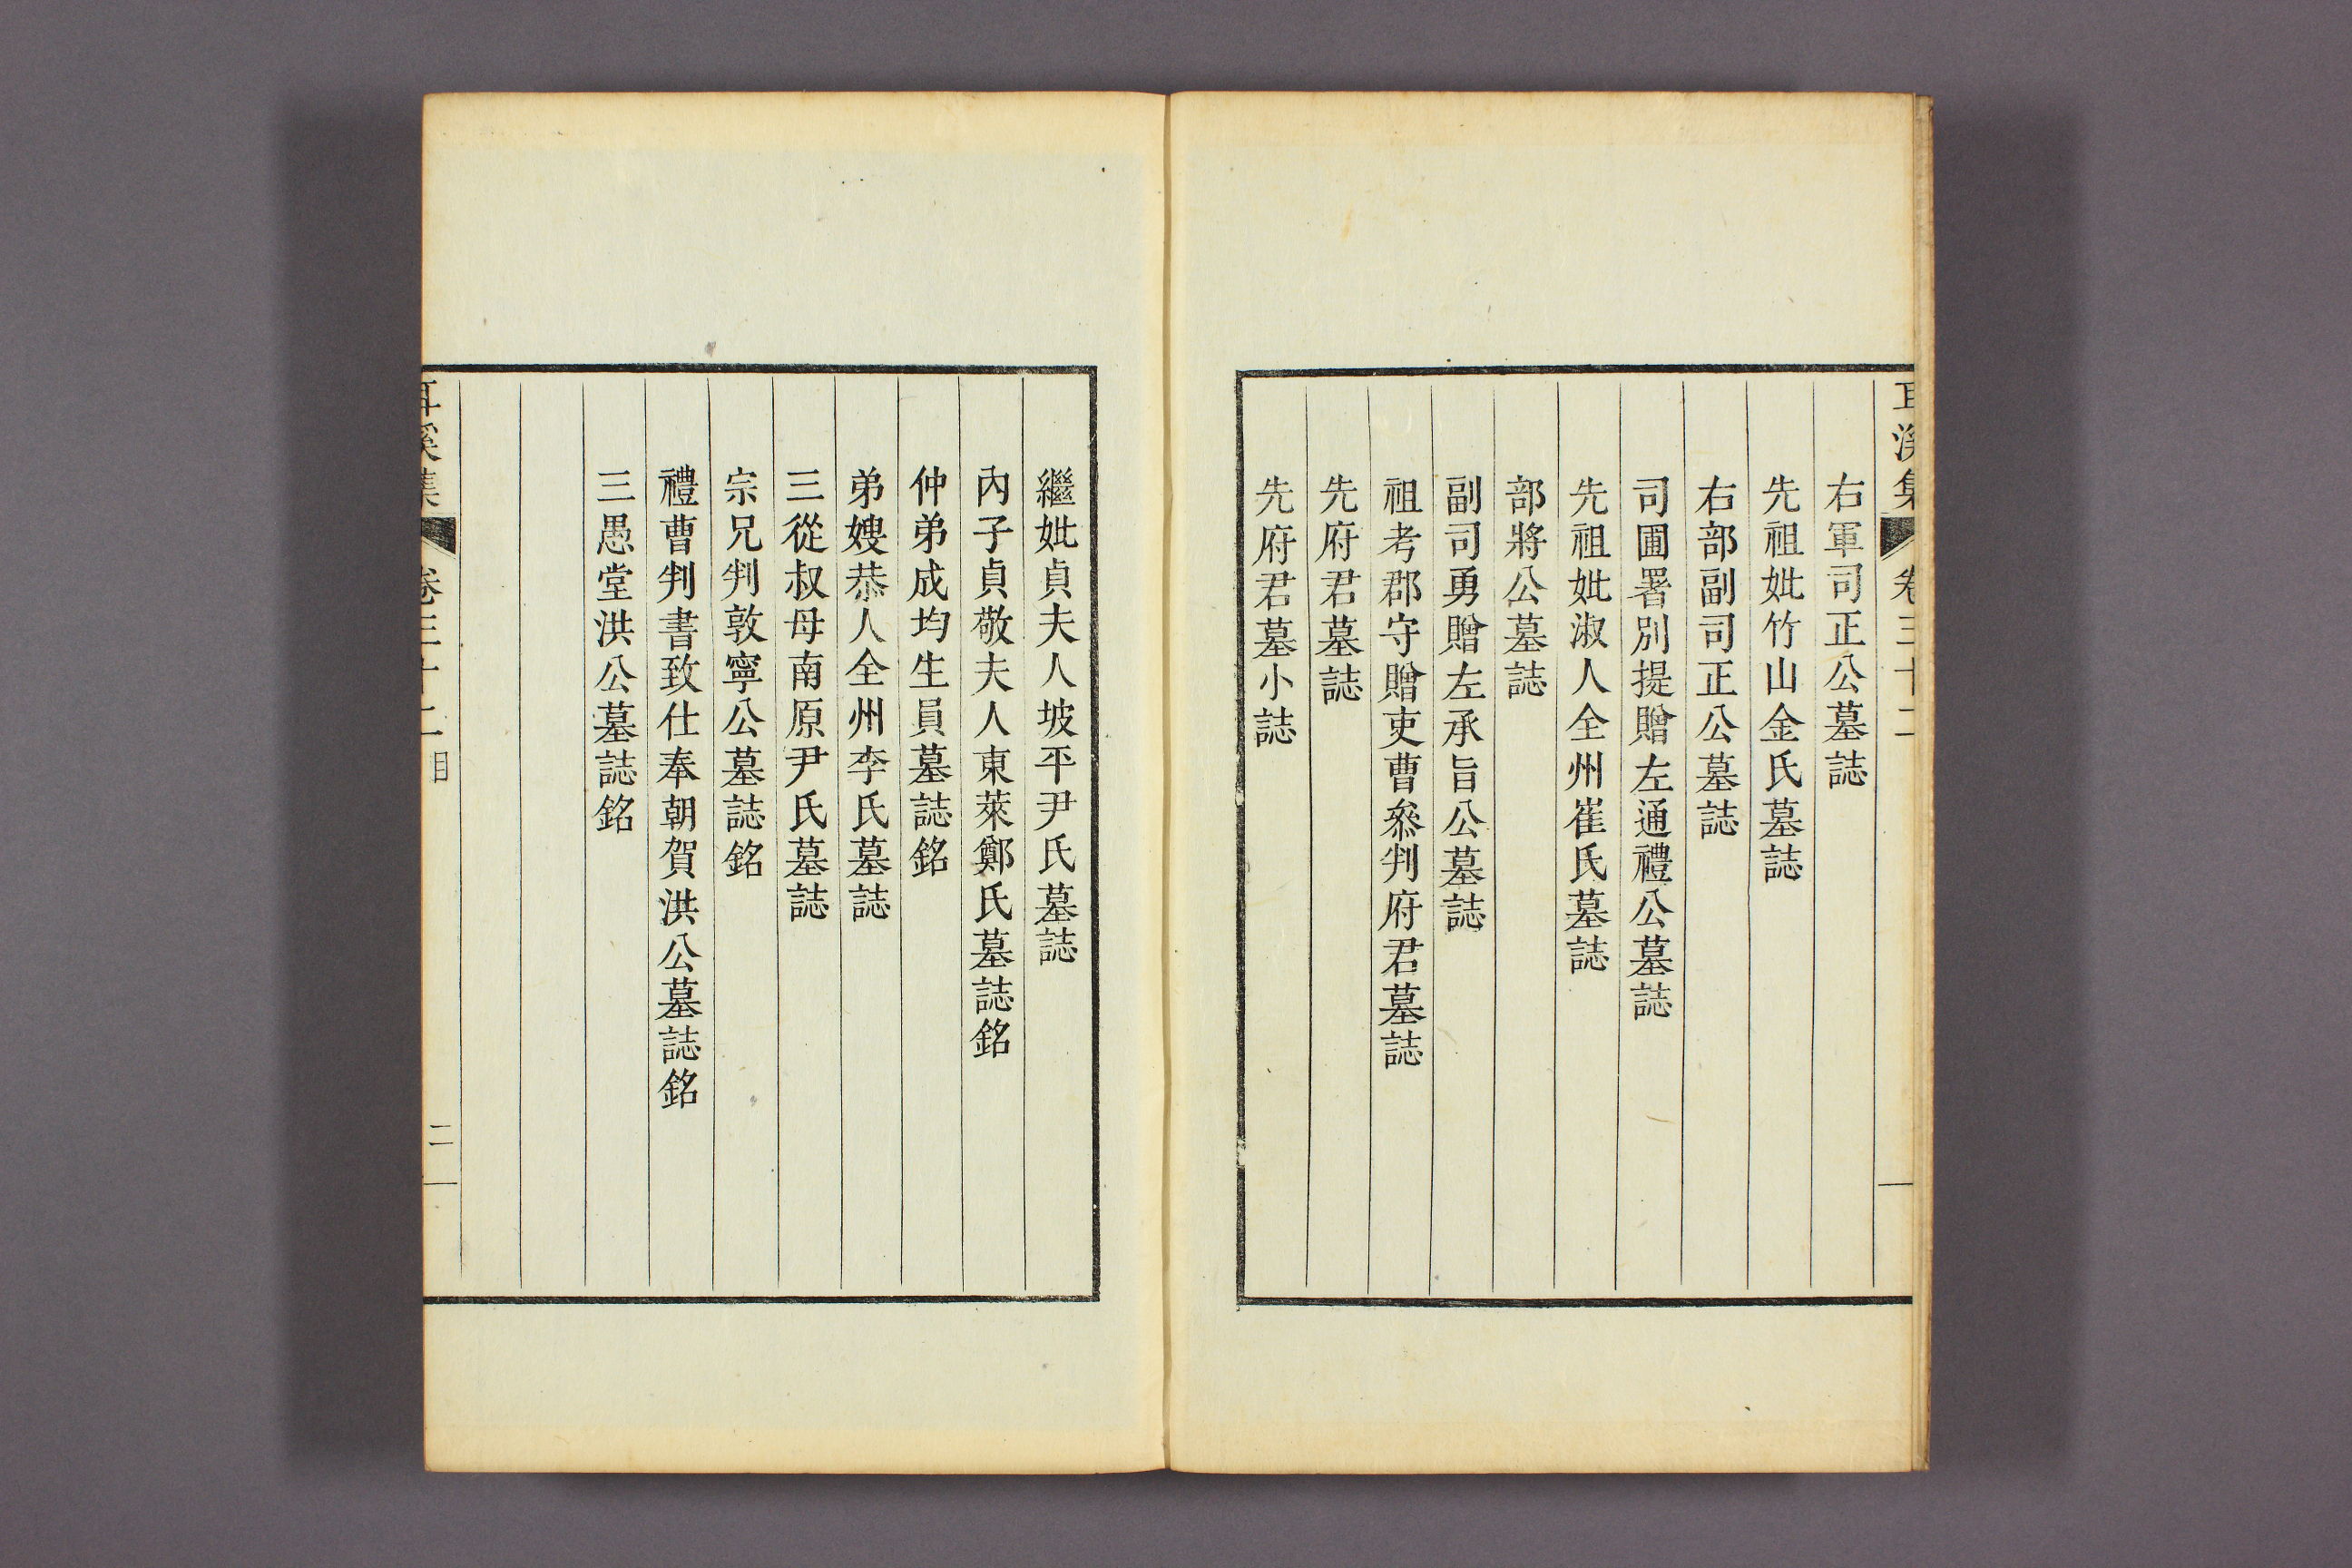 耳溪集 卷三十二
右軍司正公墓誌
先祖妣竹山金氏墓誌
右部副司正公墓誌
司圃署別提贈左通禮公墓誌
先祖妣淑人全州崔氏墓誌
部將公墓誌
副司勇贈左承旨公墓誌
祖考郡守贈吏曹叅判府君墓誌
先府君墓誌
先府君墓小誌
繼妣貞夫人坡平尹氏墓誌
內子貞敬夫人東萊鄭氏墓誌銘
仲弟成均生員墓誌銘
弟嫂恭人全州李氏墓誌
三從叔母南原尹氏墓誌
宗兄判敦寧公墓誌銘
禮曹判書致仕奉朝賀洪公墓誌銘
三愚堂洪公墓誌銘
耳溪集 卷三十二 目 二